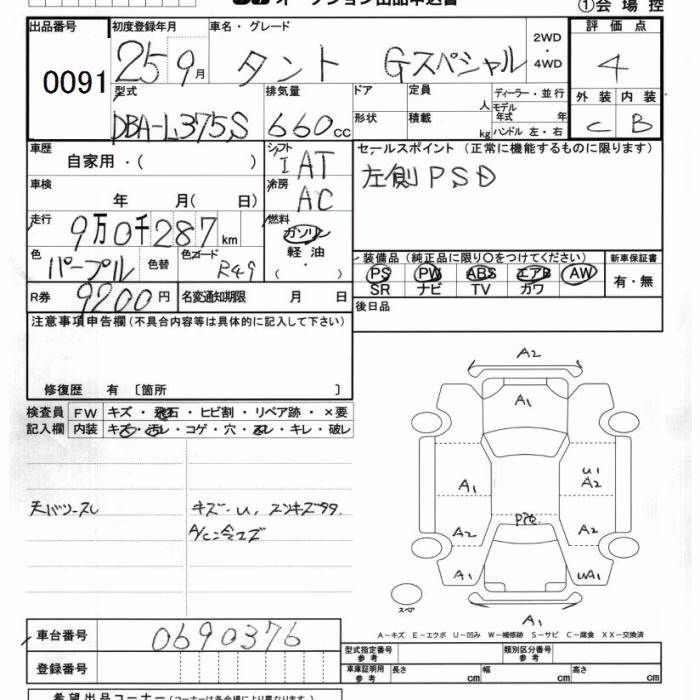 オークション出品申込書
①会場控
出品番号 初度登録年月 車名・グレード 2WD・4WD 評価点
0091 25 9月 タント Gスペシャル 4
型式 排気量 ドア 定員 人 ディーラー・並行 外装 内装
DBA-L375S 660cc 形状 積載 kg モデル年式 年 ハンドル 左・右 C B
車歴 シフト セールスポイント (正常に機能するものに限ります)
自家用・( ) IAT 左側PSD
車検 冷房
年 月( 日) AC
走行 燃料
9万0千287km ガソリン
色 色替 色コード 軽油
パープル R49 ( ・ )
装備品 (純正品に限り○をつけてください) 新車保証書
PS PW ABS エアB AW 有・無
SR ナビ TV カワ
R券 9200円 名変通知期限 月 日 後日品
注意事項申告欄(不具合内容等は具体的に記入して下さい)
修復歴 有 〔箇所 〕
検査員 FW キズ・飛石・ヒビ割・リペア跡・×要
記入欄 内装 キズ・汚レ・コゲ・穴・スレ・キレ・破レ
キズ・U,
A2
A1
U1
A1 A2
A2 A2
A1 UA1
スペア
A1
A-キズ E-エクボ U-凹み W-補修跡 S-サビ C-腐食 XX-交換済
車台番号 0690376
型式指定番号 参考 類別区分番号 参考
登録番号
車庫証明用 参考 長さ cm 幅 cm 高さ cm
希望出品コーナー(コーナーは各会場により異なります。)